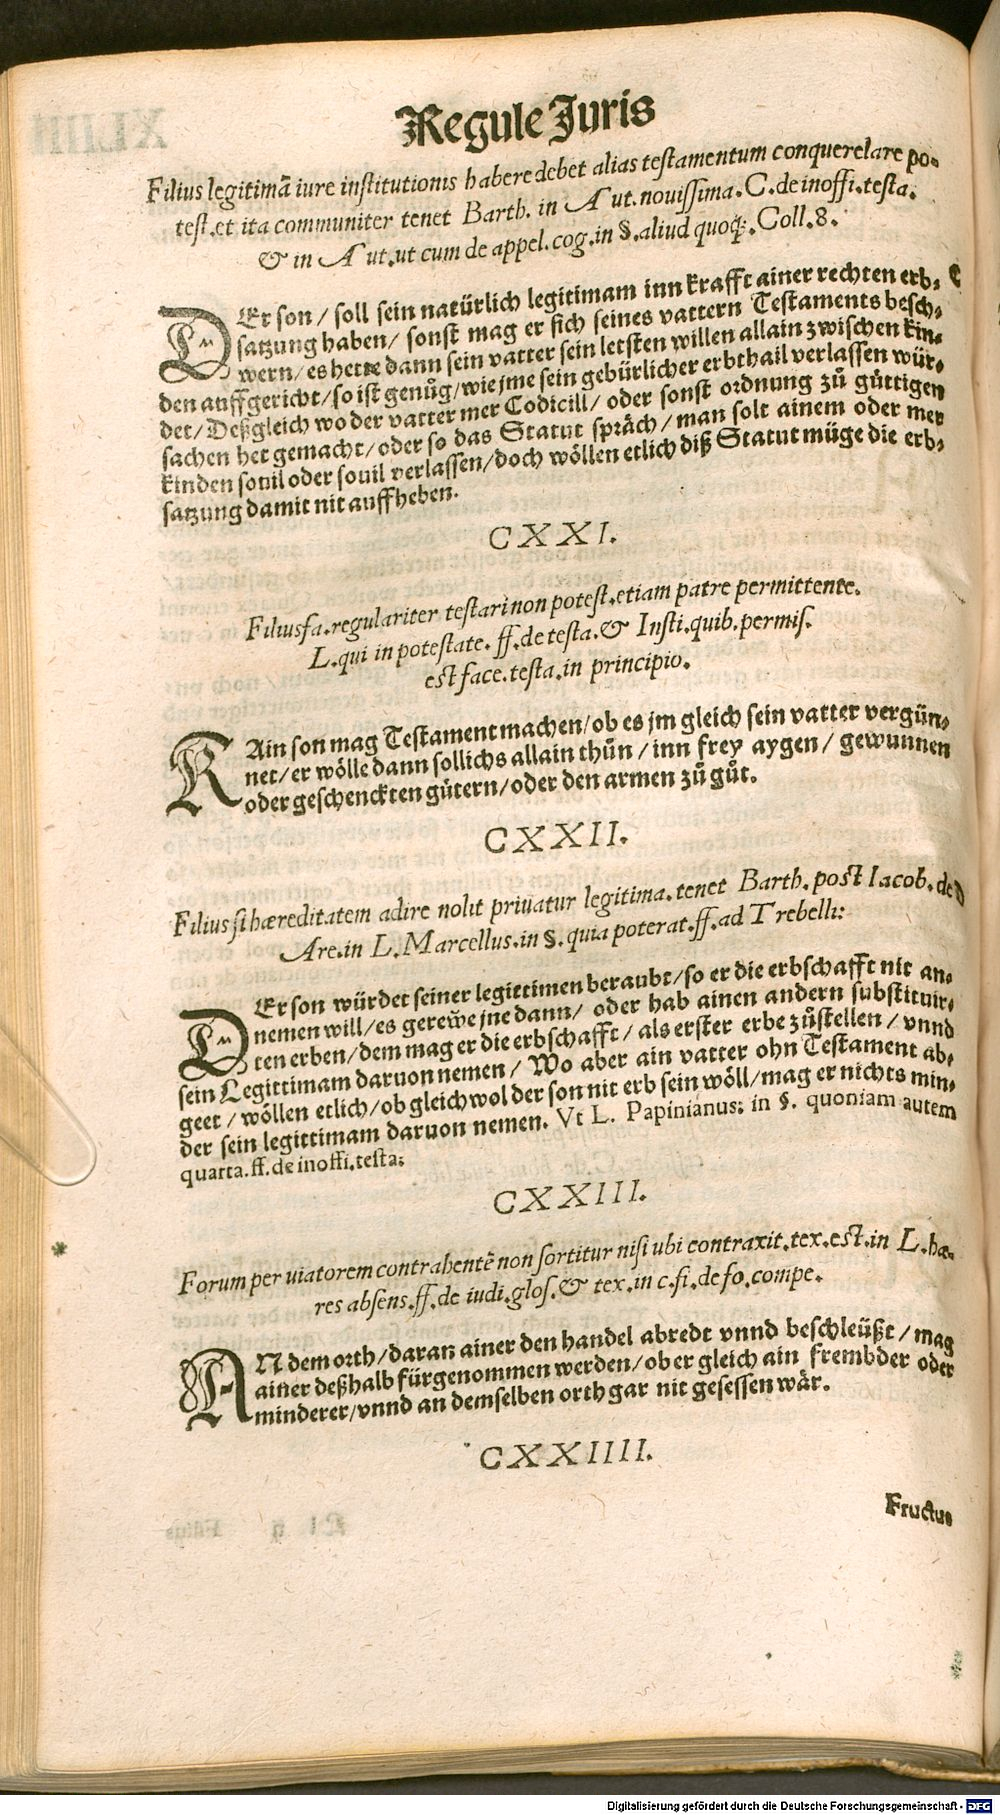 Regule Juris
Filius legitimā iure institutionis habere debet alias testamentum conquerelare po-
test.et ita communiter tenet Barth. in Aut. nouissima. C. de inoffi. testa.
& in Aut.ut cum de appel.cog.in §.aliud quoq;. Coll. 8.
DEr son / soll sein natürlich legitimam inn krafft ainer rechten erb-
satzung haben / sonst mag er sich seines vattern Testaments besch-
wern / es hette dann sein vatter sein letsten willen allain zwischen kin-
den auffgericht / so ist genůg / wie jme sein gebürlicher erbthail verlassen wür-
det / Deßgleich wo der vatter mer Codicill / oder sonst ordnung zů güttigen
sachen het gemacht / oder so das Statut spräch / man solt ainem oder mer
kinden souil oder souil verlassen / doch wöllen etlich diß Statut müge die erb-
satzung damit nit auffheben.
CXXI.
Filiusfa.regulariter testari non potest.etiam patre permittente.
L.qui in potestate. ff.de testa.& Insti.quib.permis.
est face.testa.in principio.
KAin son mag Testament machen / ob es jm gleich sein vatter vergün-
net / er wölle dann sollichs allain thůn / inn frey aygen / gewunnen
oder geschenckten gütern / oder den armen zů gůt.
CXXII.
Filius si hæreditatem adire nolit priuatur legitima.tenet Barth. post Iacob. de
Are.in L.Marcellus.in §.quia poterat.ff.ad Trebelli:
DEr son würdet seiner legittimen beraubt / so er die erbschafft nit an-
nemen will / es gerewe jne dann / oder hab ainen andern substituir-
ten erben / dem mag er die erbschafft / als erster erbe zůstellen / vnnd
sein Legittimam daruon nemen / Wo aber ain vatter ohn Testament ab-
geet / wöllen etlich / ob gleich wol der son nit erb sein wöll / mag er nichts min-
der sein legittimam daruon nemen. Vt L. Papinianus: in §. quoniam autem
quarta.ff.de inoffi.testa:
CXXIII.
Forum per uiatorem contrahentē non sortitur nisi ubi contraxit.tex.est.in L.hæ-
res absens.ff.de iudi.glos.& tex.in c.fi.de fo.compe.
AN dem orth / daran ainer den handel abredt vnnd beschleüßt / mag
ainer deßhalb fürgenommen werden / ob er gleich ain frembder oder
minderer / vnnd an demselben orth gar nit gesessen wär.
CXXIIII.
Fructus
Digitalisierung gefördert durch die Deutsche Forschungsgemeinschaft - DFG